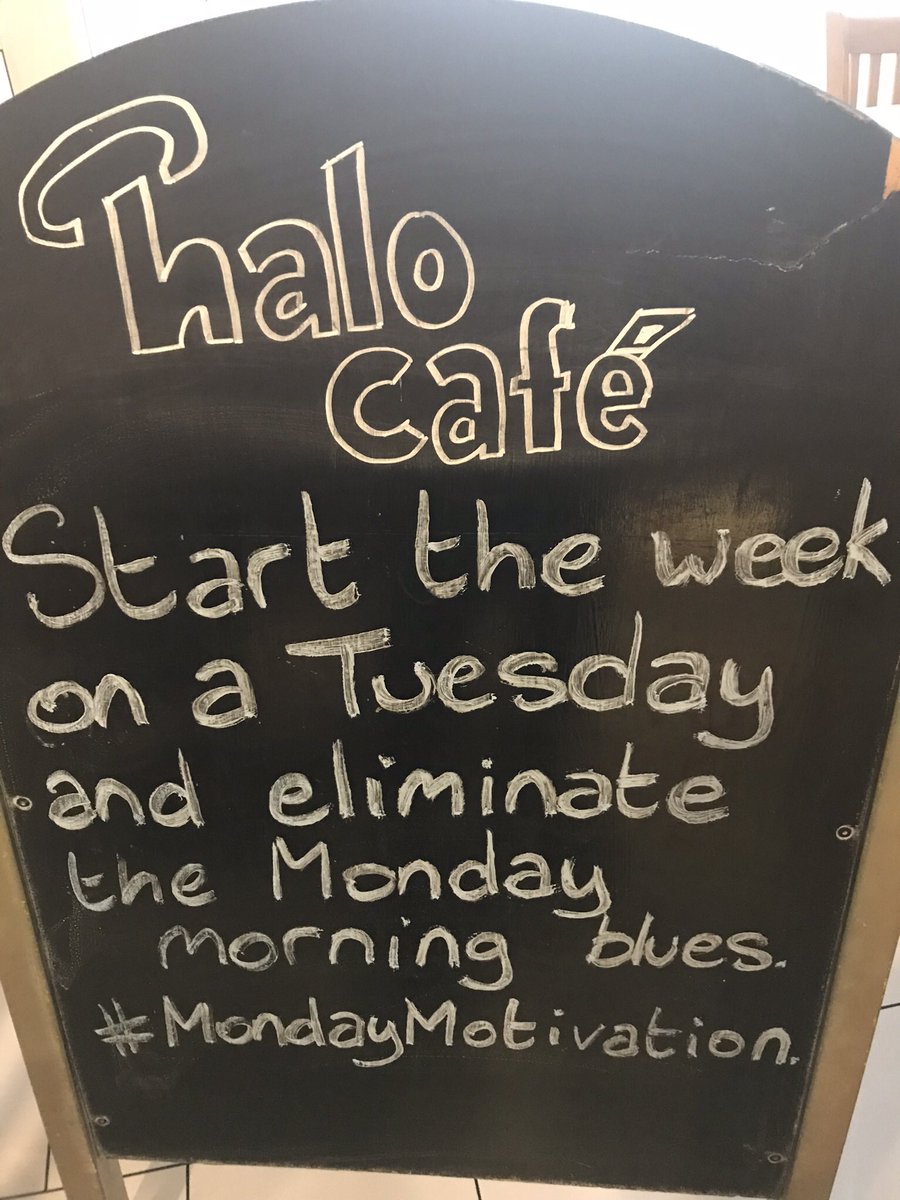 halo
café
Start the week
on a Tuesday
and eliminate
the Monday
morning blues.
#MondayMotivation.